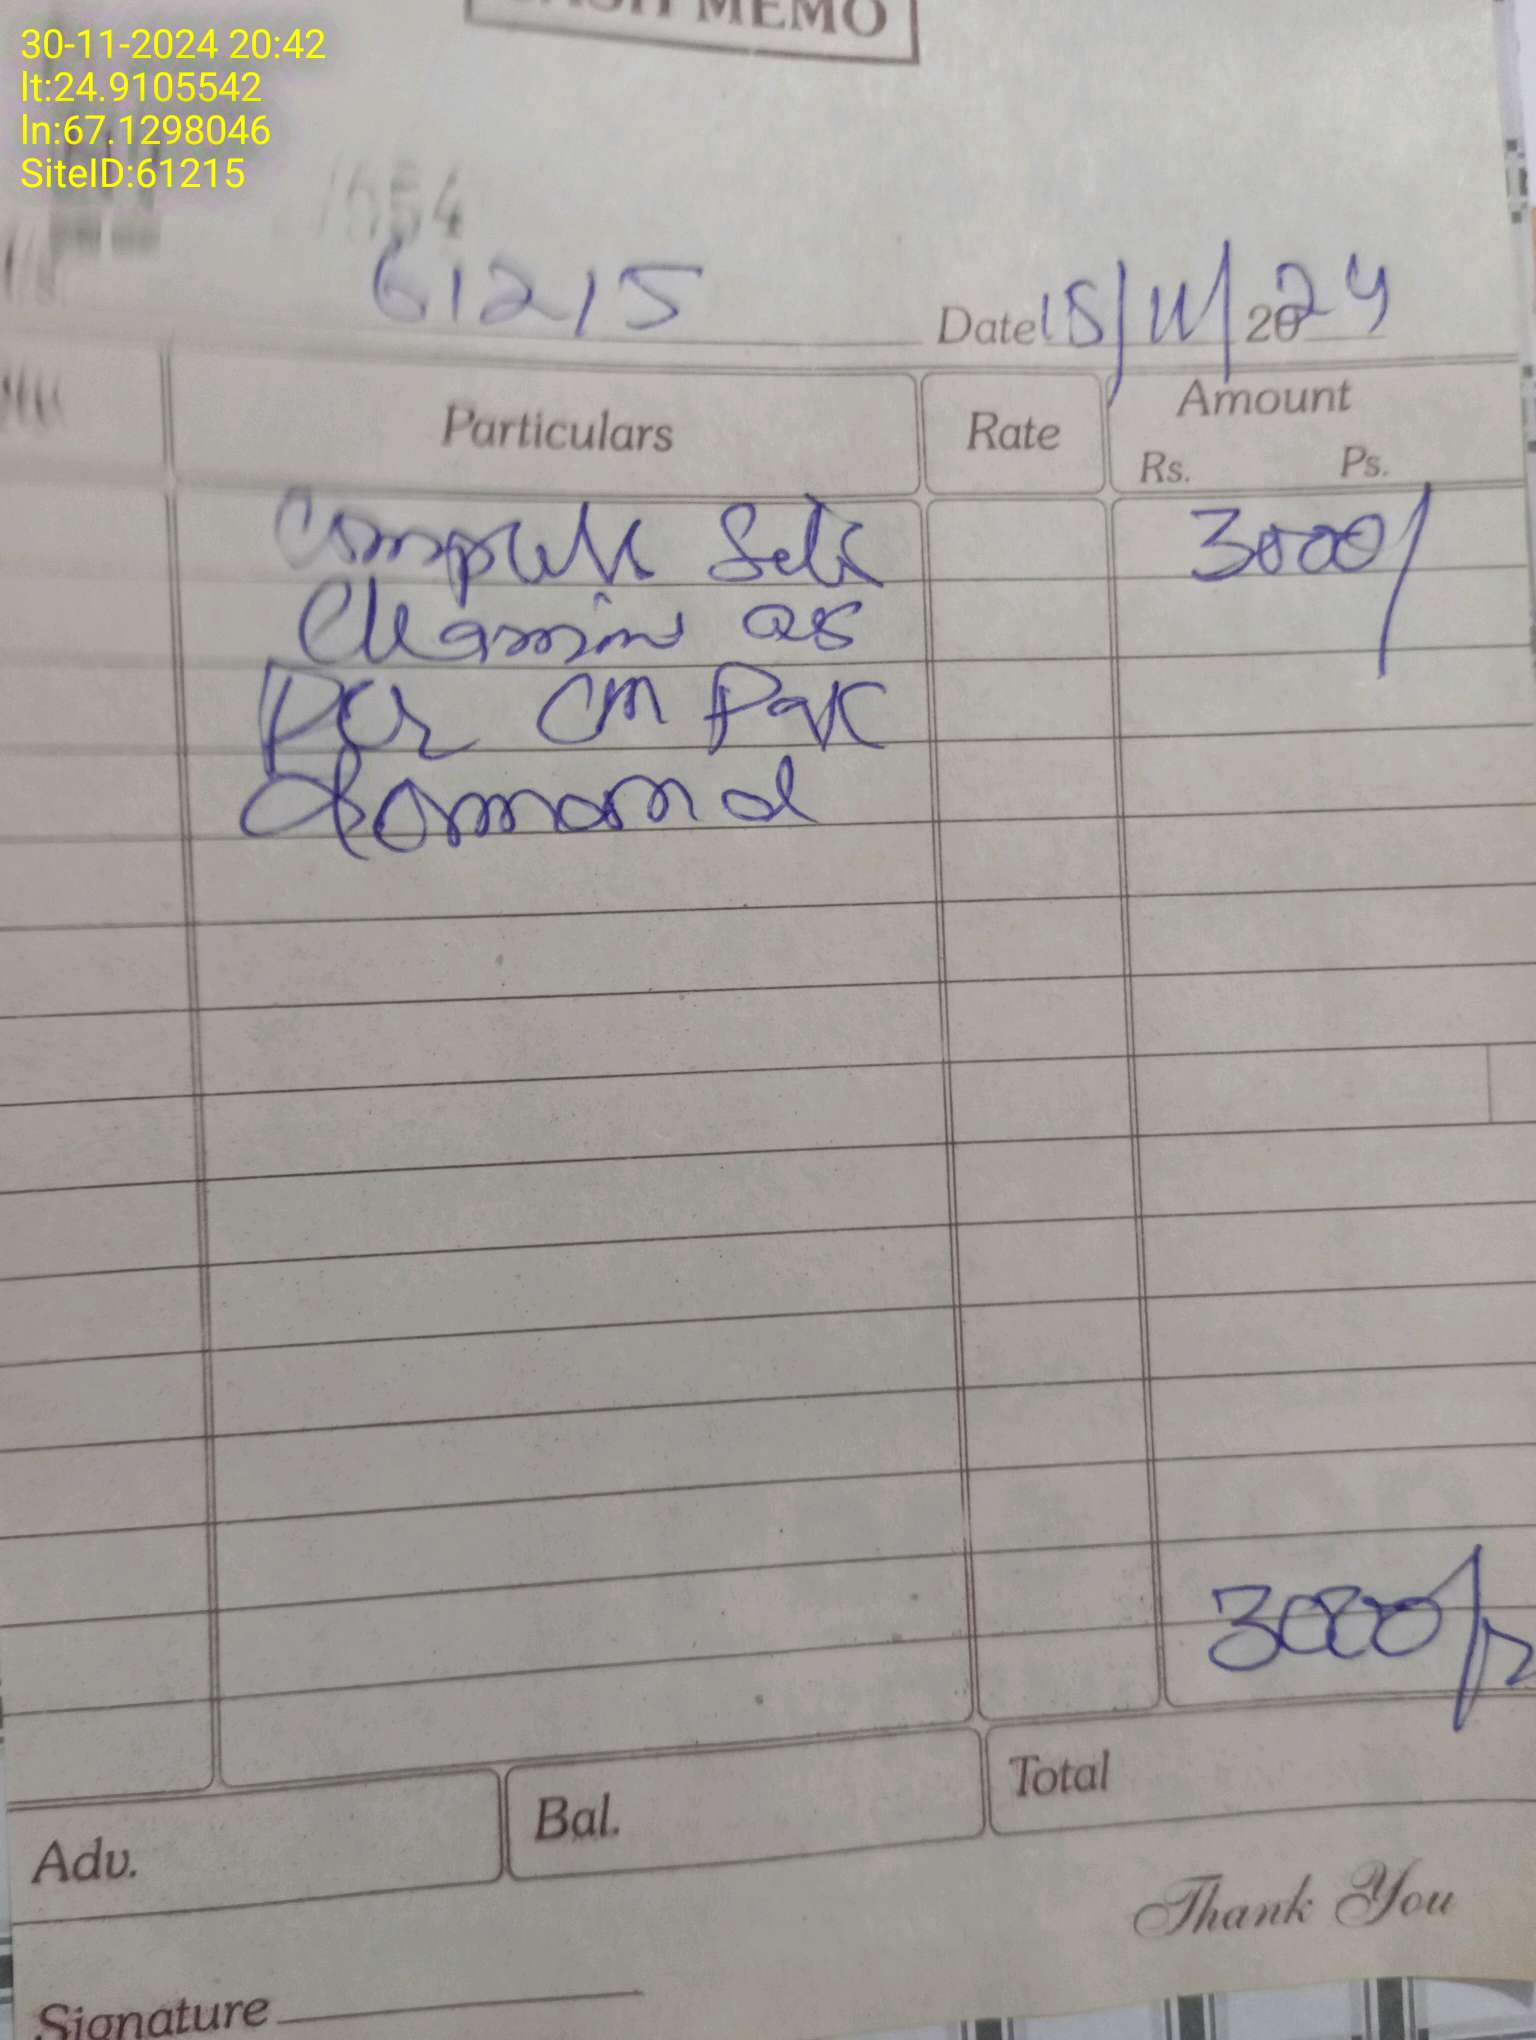 CASH MEMO
30-11-2024 20:42
lt:24.9105542
ln:67.1298046
SiteID:61215
1654
61215
Date 15/11/2024
Particulars
Rate
Amount
Rs. Ps.
Complete Site 3000/
Cleaning as
Per CM Pak
demand
3000/
Total
Bal.
Adv.
Thank You
Signature